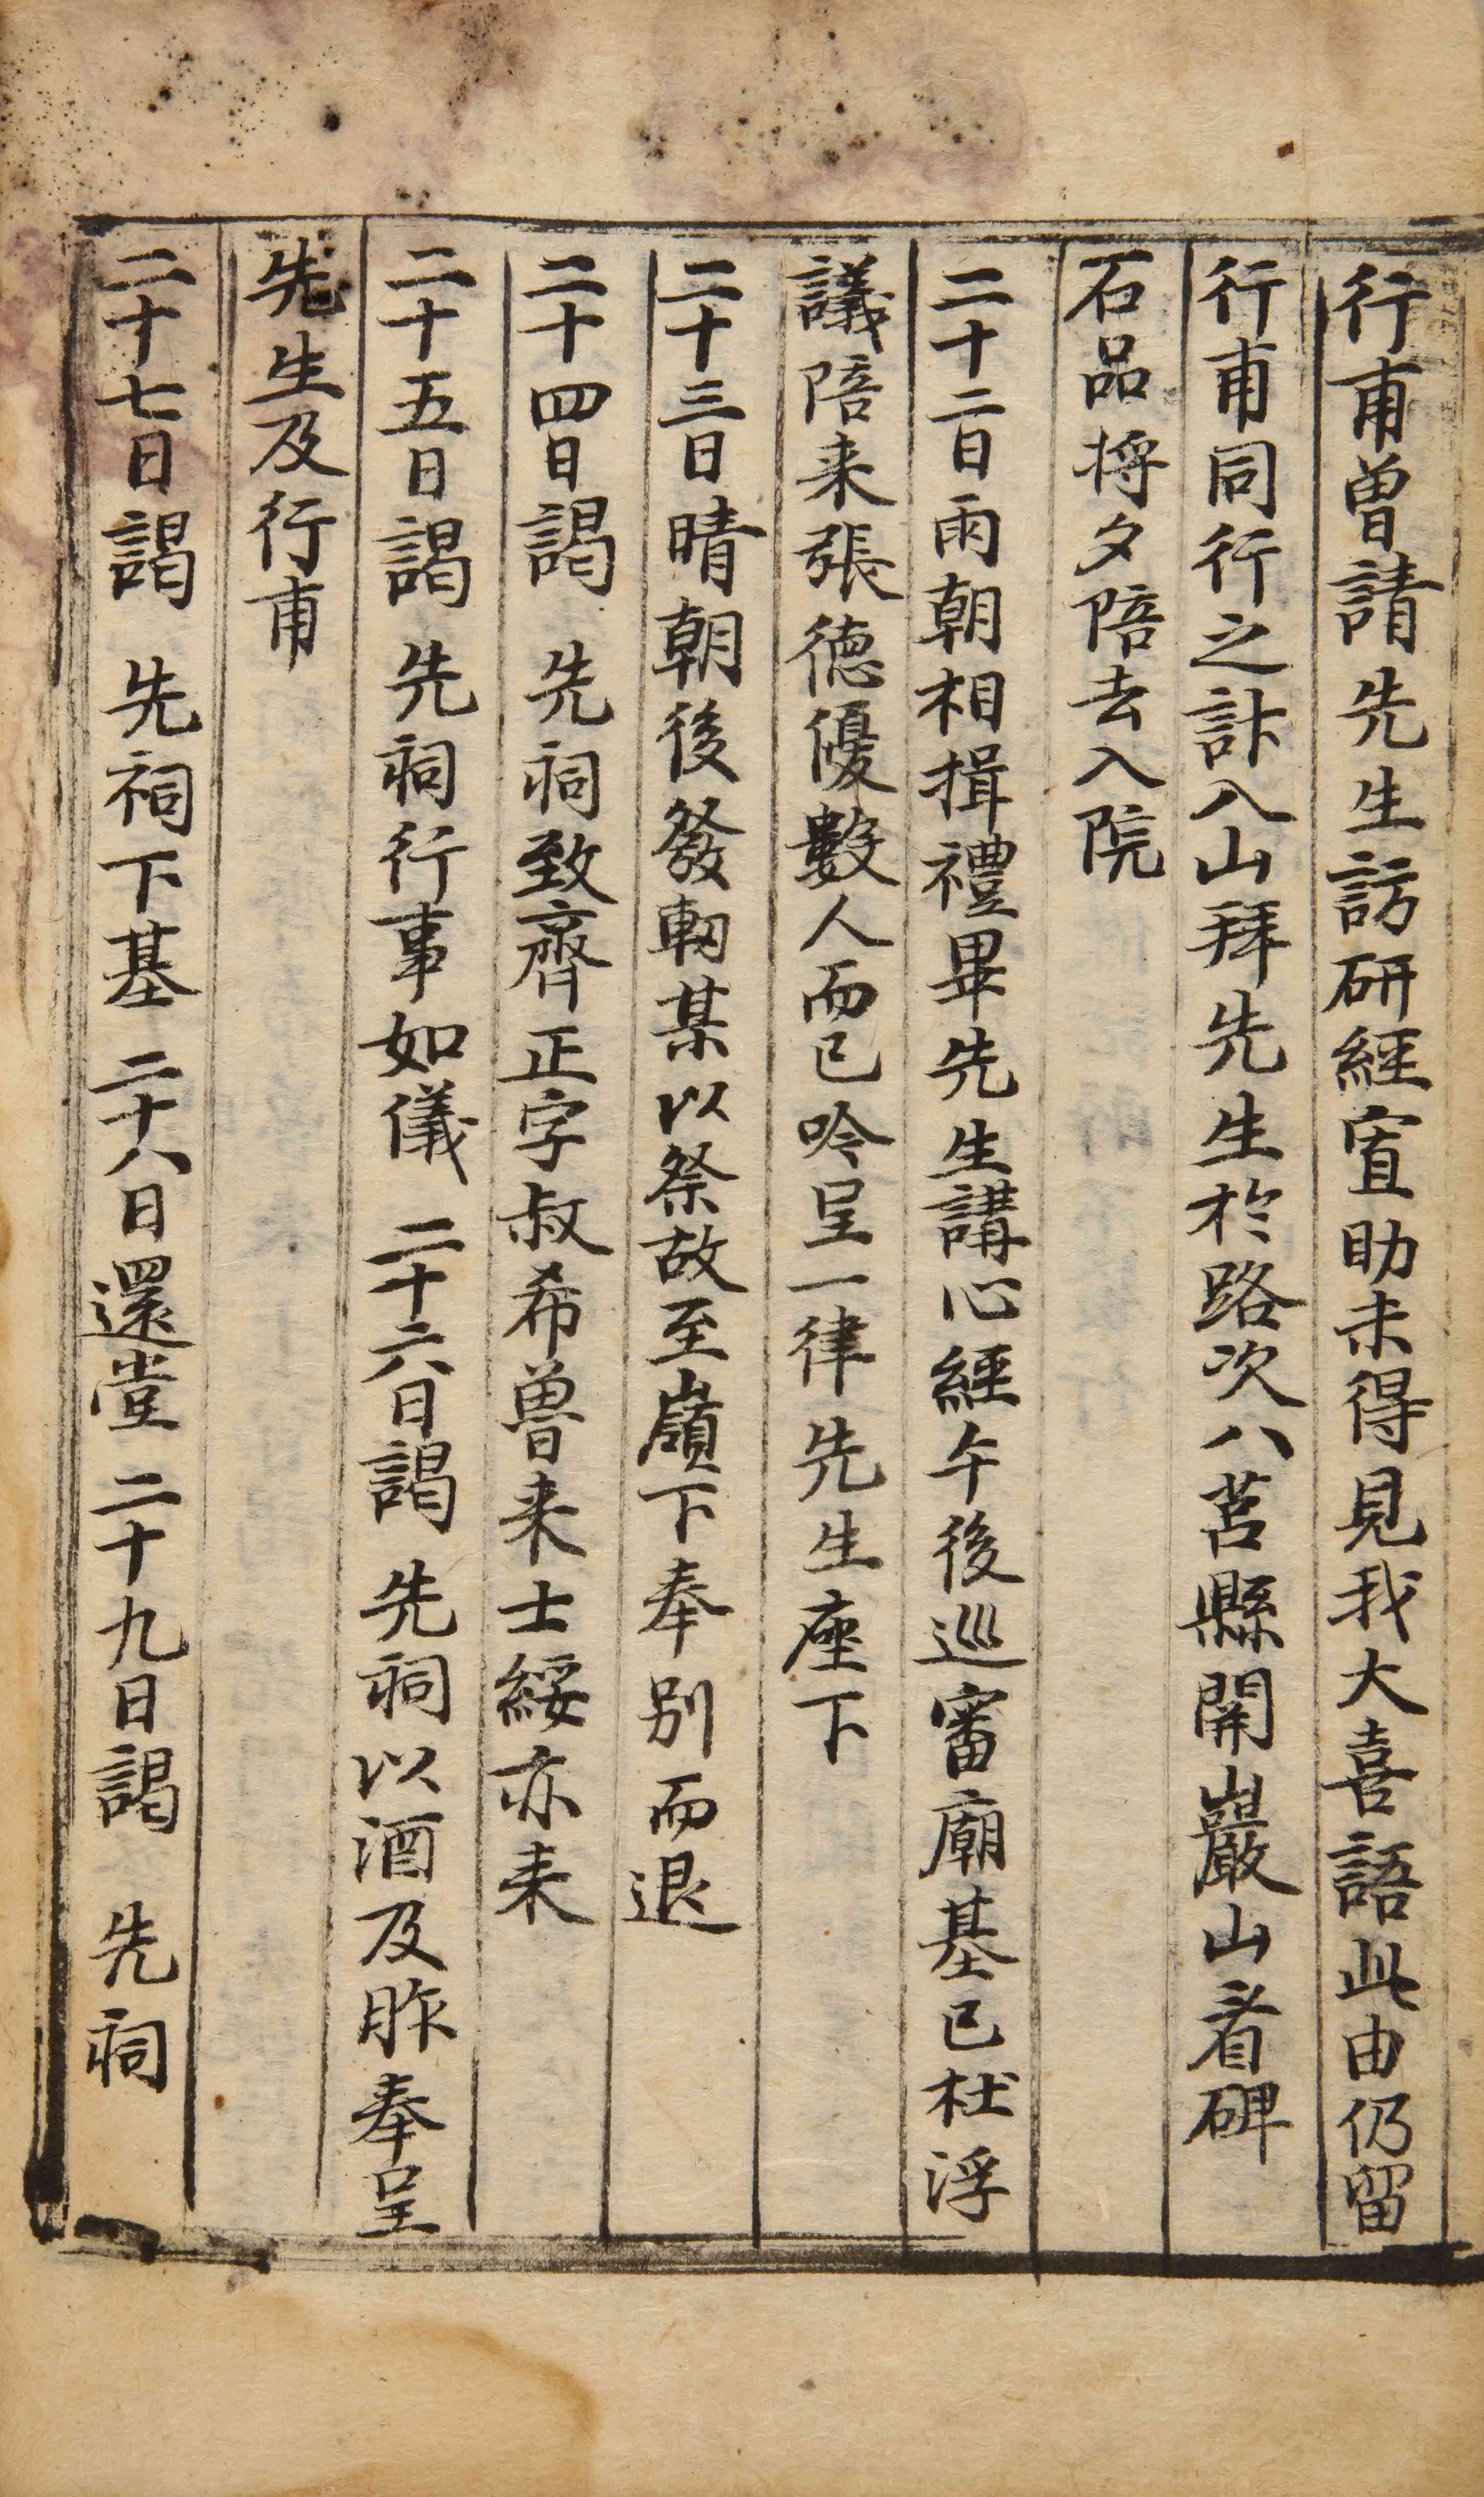 行甫曾請先生訪研經寘助未得見我大喜語此由仍留
行甫同行之計入山拜先生於路次八莒縣開巖山看碑
石品将夕陪去入院
二十二日雨朝相揖禮畢先生講心經午後巡審廟基已杖浮
議陪来張德優數人而已吟呈一律先生座下
二十三日晴朝後發軔某以祭故至嶺下奉別而退
二十四日謁 先祠致齊正字叔希曽来士綏亦来
二十五日謁 先祠行事如儀 二十六日謁 先祠以酒及胙奉呈
先生及行甫
二十七日謁 先祠下基 二十八日還堂 二十九日謁 先祠